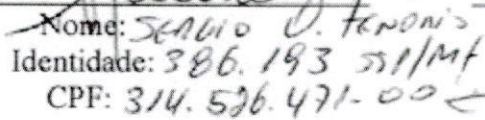 Nome: SERGIO V. TENORIO
Identidade: 386.193 SSP/MT
CPF: 314.526.471-00